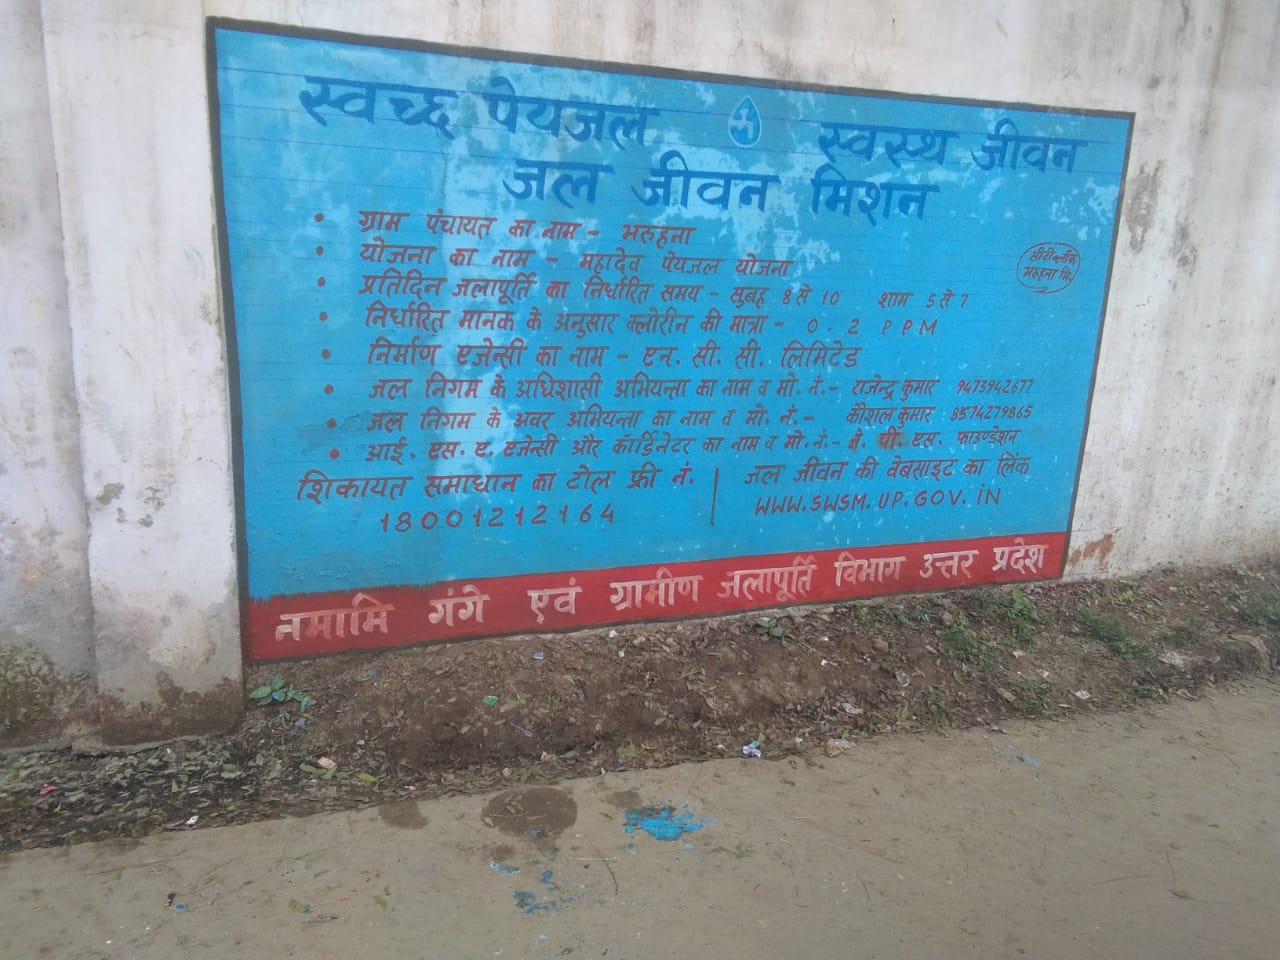 स्वच्छ पेयजल स्वस्थ जीवन
जल जीवन मिशन
• ग्राम पंचायत का नाम - भरुहना
• योजना का नाम - महादेव पेयजल योजना
• प्रतिदिन जलापूर्ति का निर्धारित समय - सुबह 8 से 10 शाम 5 से 7
• निर्धारित मानक के अनुसार क्लोरीन की मात्रा - 0.2 PPM
• निर्माण एजेन्सी का नाम - एन. सी. सी. लिमिटेड
• जल निगम के अधिशासी अभियन्ता का नाम व मो. नं.- राजेन्द्र कुमार 9473942677
• जल निगम के अवर अभियन्ता का नाम व मो. नं.- कौशल कुमार 8574279865
• आई. एस. ए. एजेन्सी और कॉर्डिनेटर का नाम व मो. नं.- बी. पी. एस. फाउण्डेशन
शिकायत समाधान का टोल फ्री नं.
18001212164
जल जीवन की वेबसाइट का लिंक
WWW.SWSM.UP.GOV.IN
नमामि गंगे एवं ग्रामीण जलापूर्ति विभाग उत्तर प्रदेश